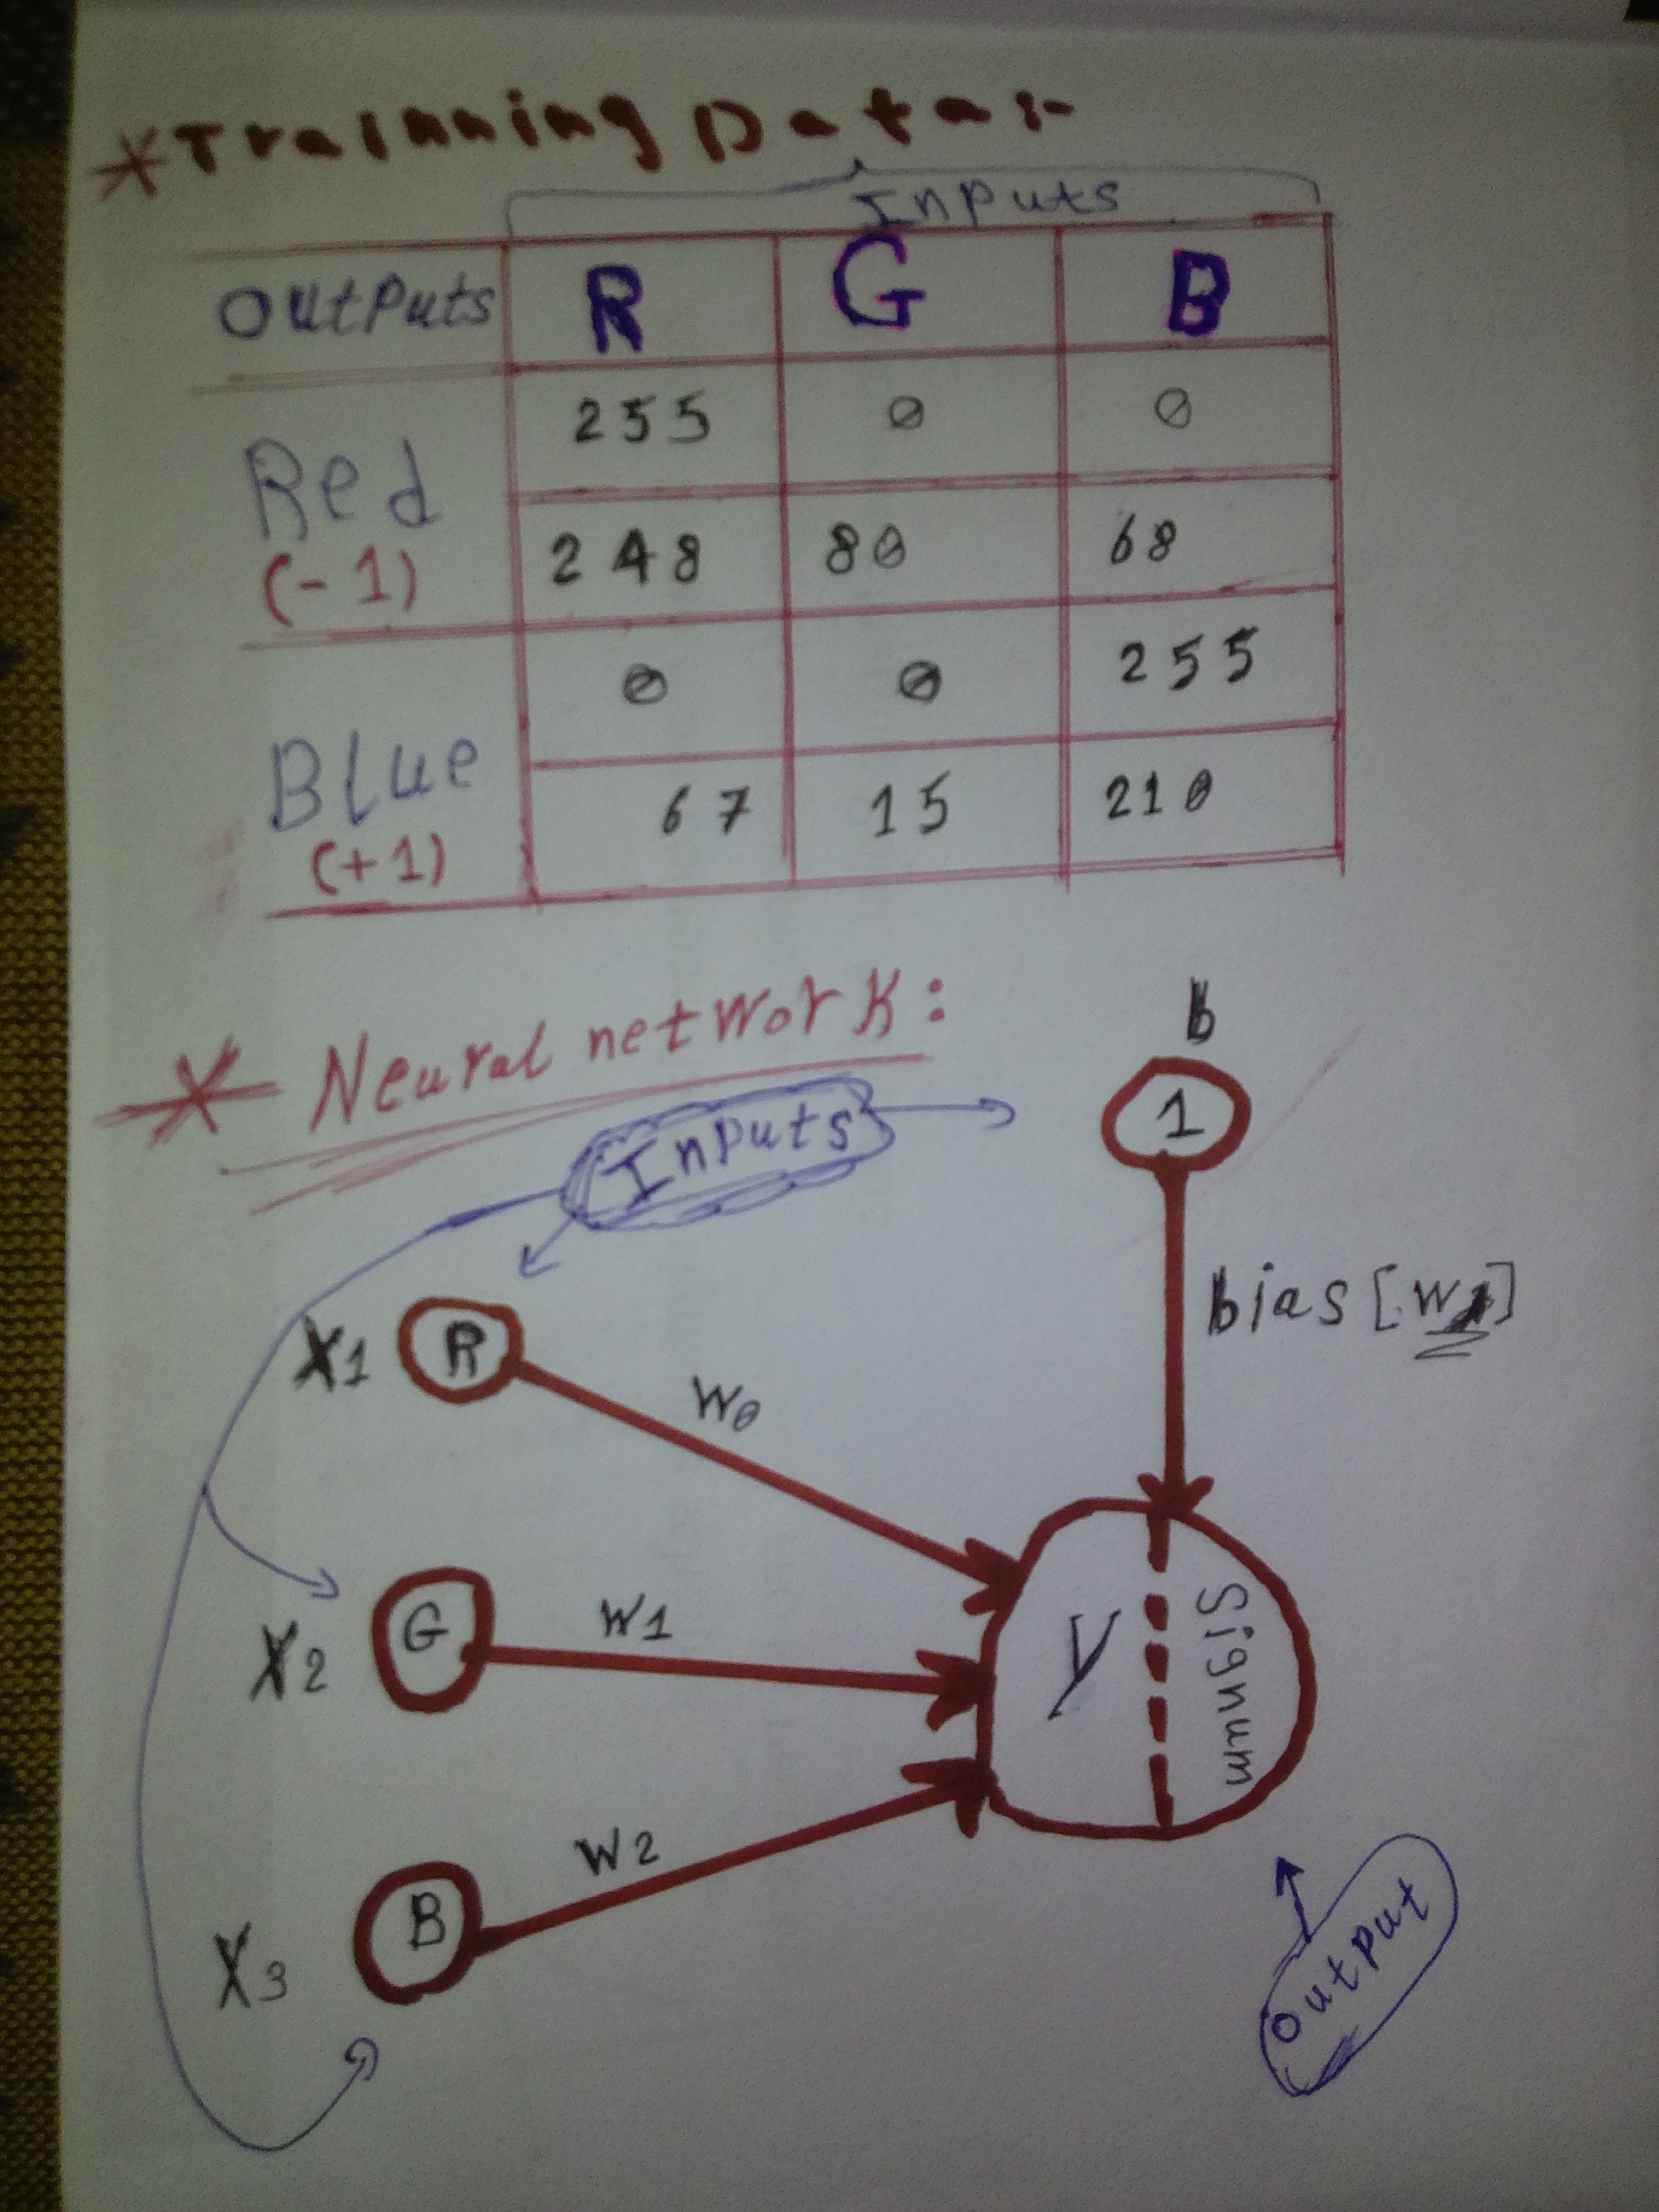 *Trainning Data:-
Inputs
Outputs R G B
Red
(-1)
255 0 0
248 80 68
Blue
(+1)
0 0 255
67 15 210
* Neural network:
b
1
Inputs
bias [w
X1 R
W0
X2 G
W1
Y
Signum
X3 B
W2
Output